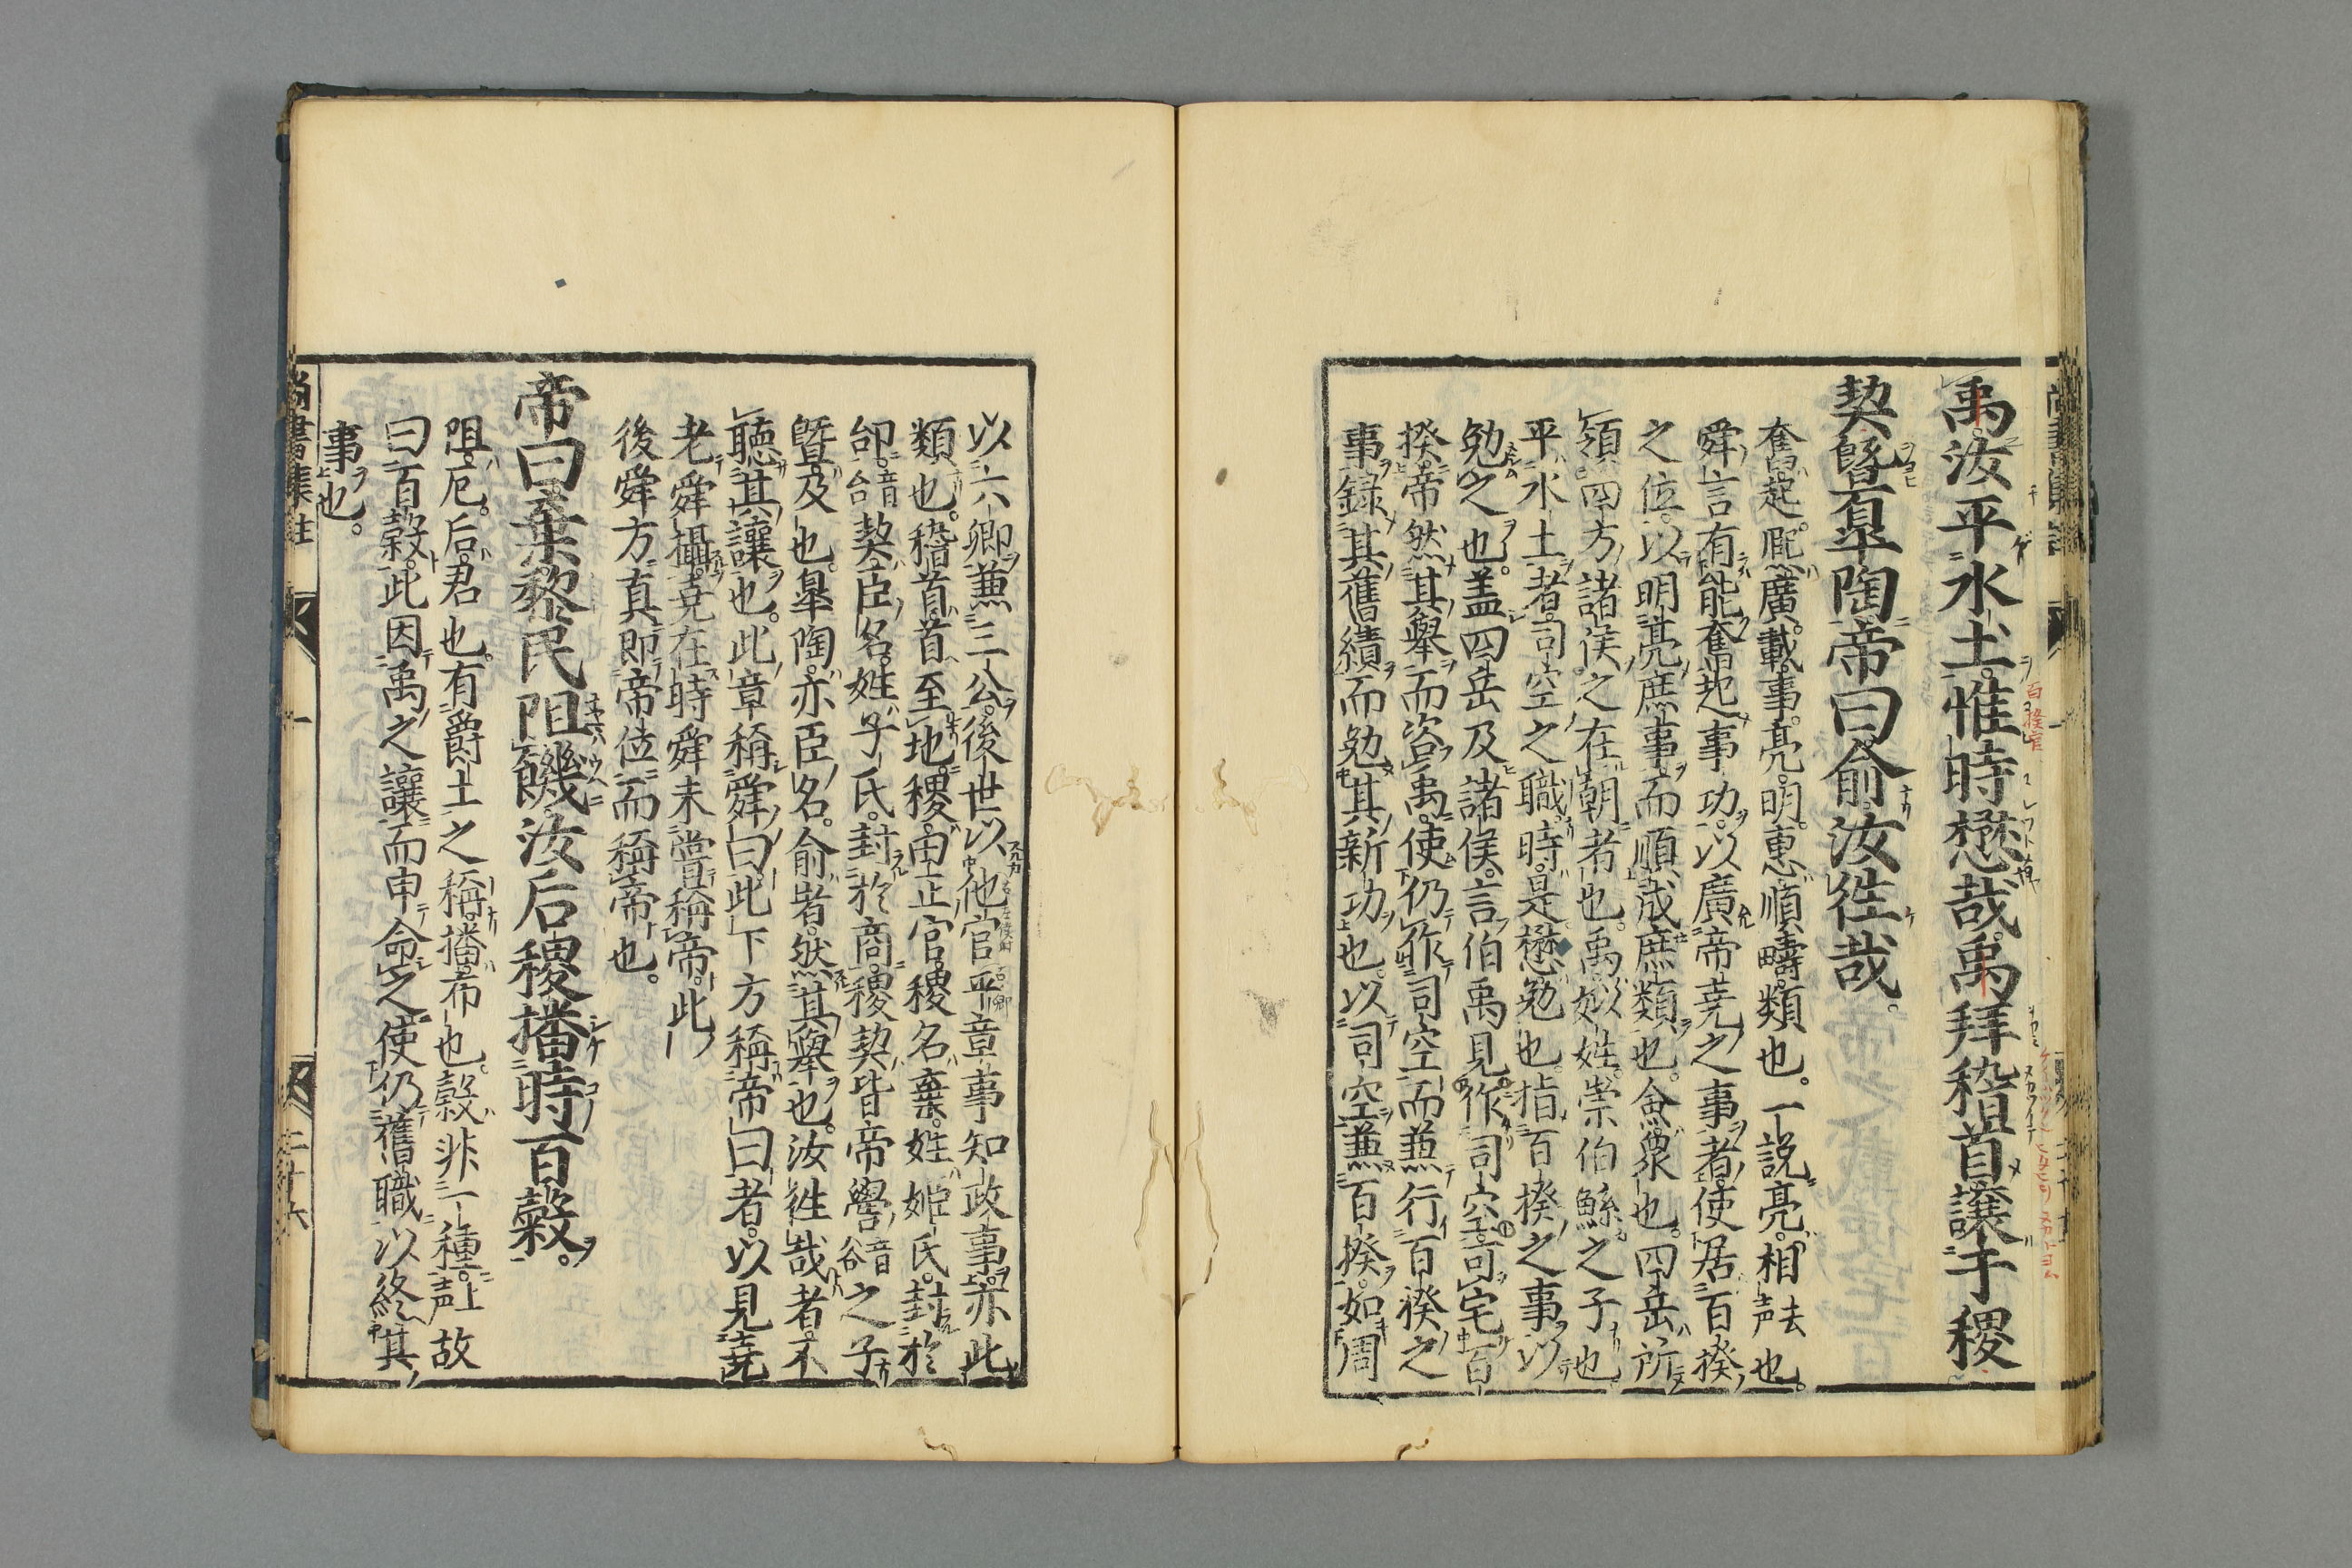 禹汝平水土惟時懋哉禹拜稽首讓于稷
契曁皐陶帝曰俞汝徃哉。
奮起。熈廣。載事。亮明。惠順疇類也。一說亮。相去声也。
舜言有能奮起事功。以廣帝尭之事者。使居百揆
之位。以明亮庶事。而順成庶類也。僉衆也。四岳所
領四方諸侯之在朝者也。禹姒姓。崇伯鯀之子也
平水土者。司空之職。時是懋勉也。指百揆之事以
勉之也。盖四岳及諸侯。言伯禹見作司空可宅百
揆。帝然其舉而咨禹。使仍作司空而兼行百揆之
事。録其舊績而勉其新功也。以司空兼百揆。如周
以六卿兼三公。後世以他官平章事知政事。亦此
類也。稽首。首至地。稷。田正官。稷名棄。姓姬氏。封於
邰。音台契臣名。姓子氏。封於商。稷契皆帝嚳音谷之子
曁。及也。皐陶。亦臣名。俞者。然其舉也。汝徃哉者。不
聴其讓也。此章稱舜曰。此下方稱帝曰者。以見尭
老舜攝。尭在時舜未嘗稱帝。此
後舜方真即帝位而稱帝也。
帝曰棄黎民阻饑汝后稷播時百穀。
阻。厄。后。君也。有爵土之稱。播。布也。穀非一種。上声故
曰百穀。此因禹之讓而申命之。使仍舊職以終其
事也。
尚書集註
二十六